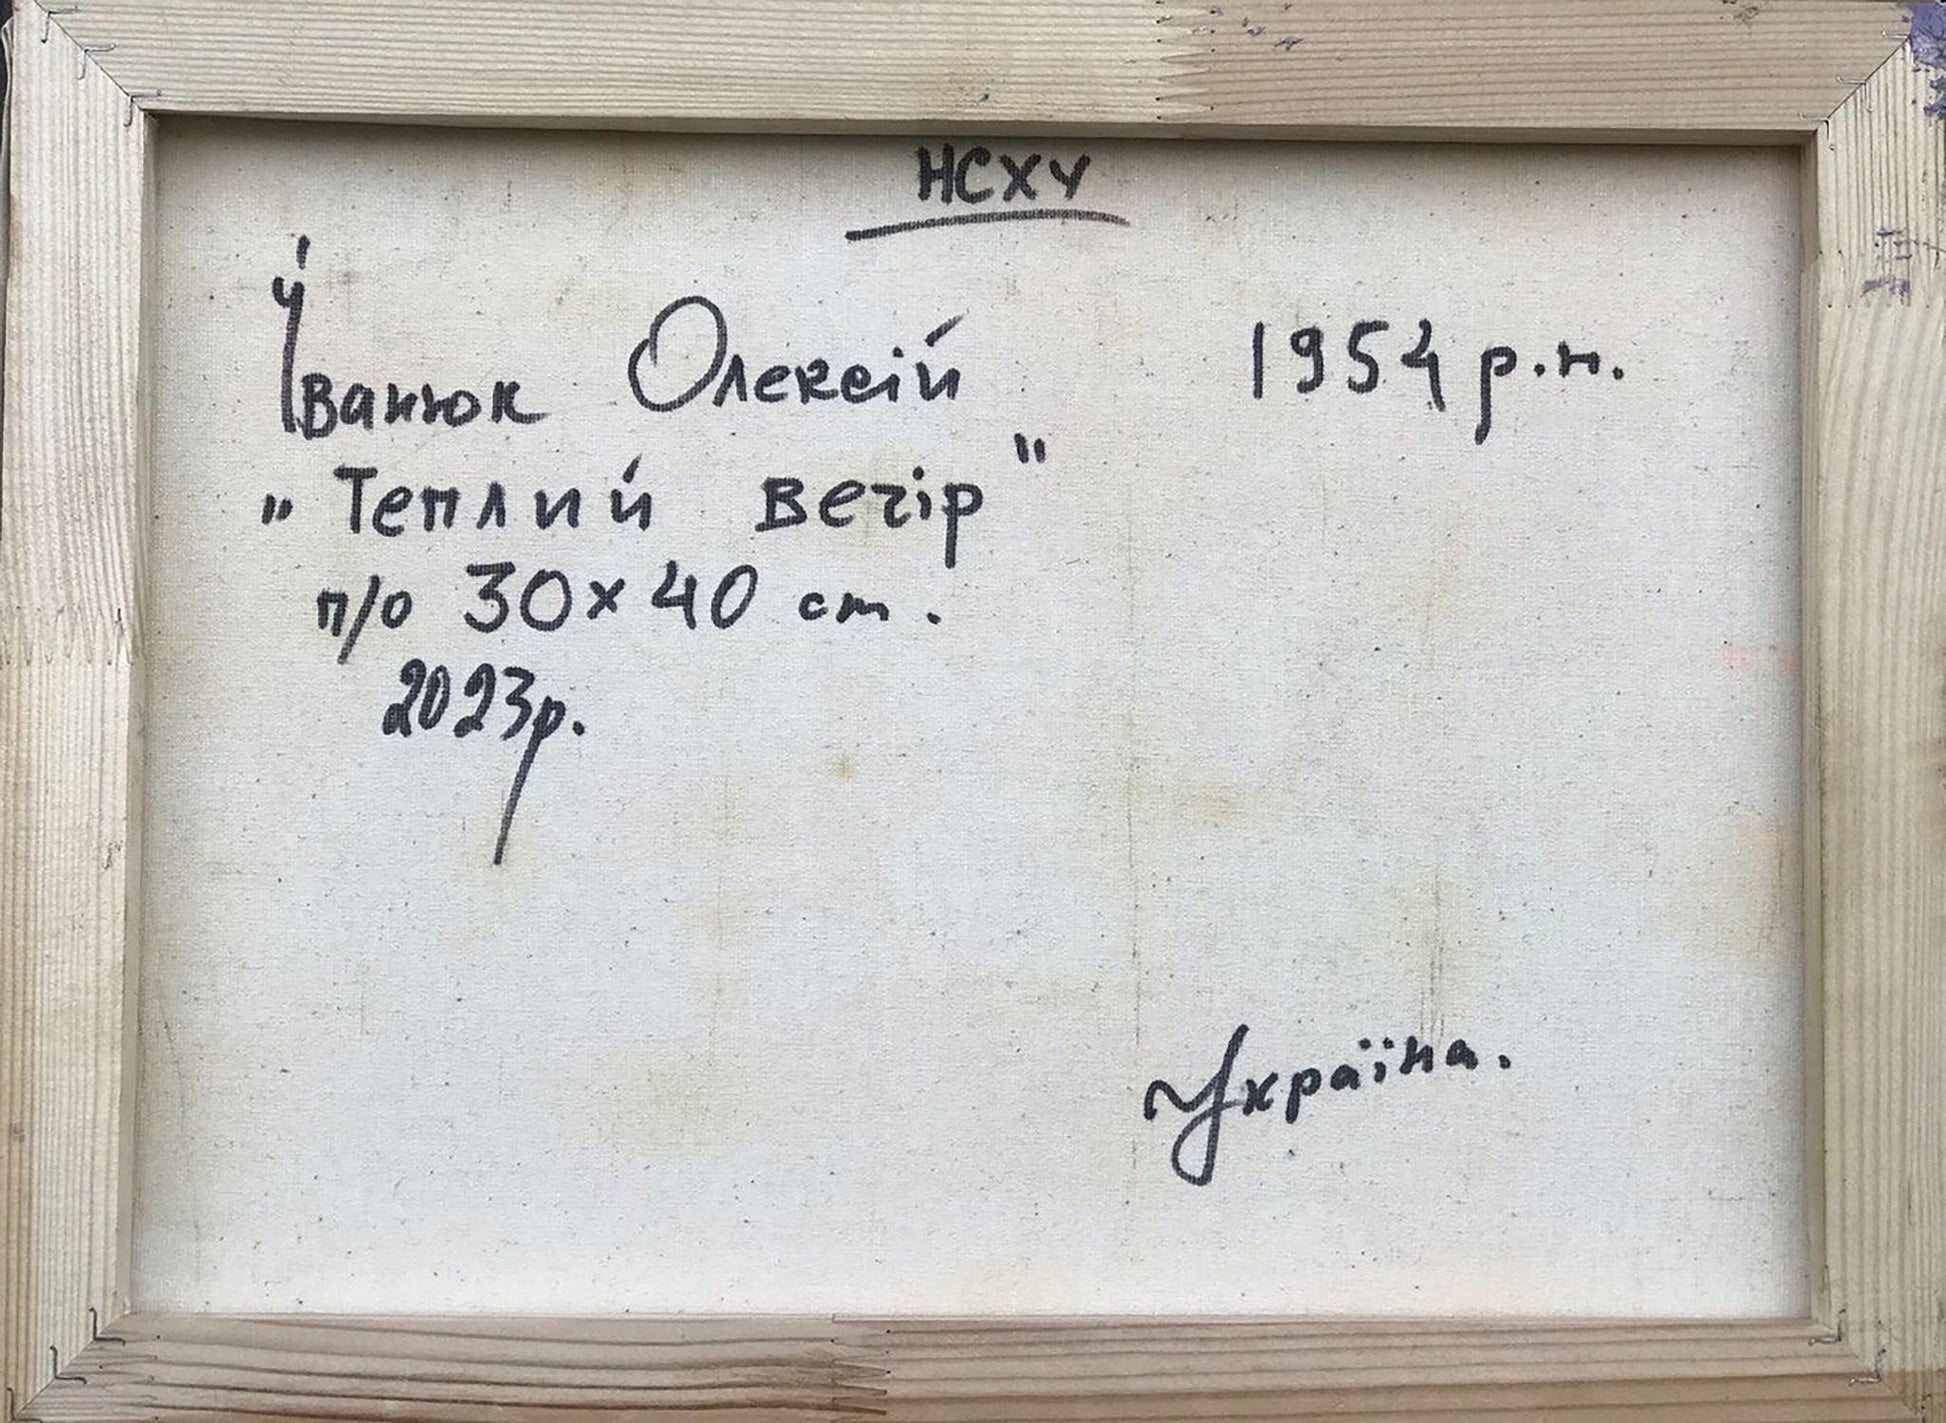 НСХУ
Іванюк Олексій 1954 р.н.
„Теплий вечір"
п/о 30×40 cm.
2023р.
Україна.